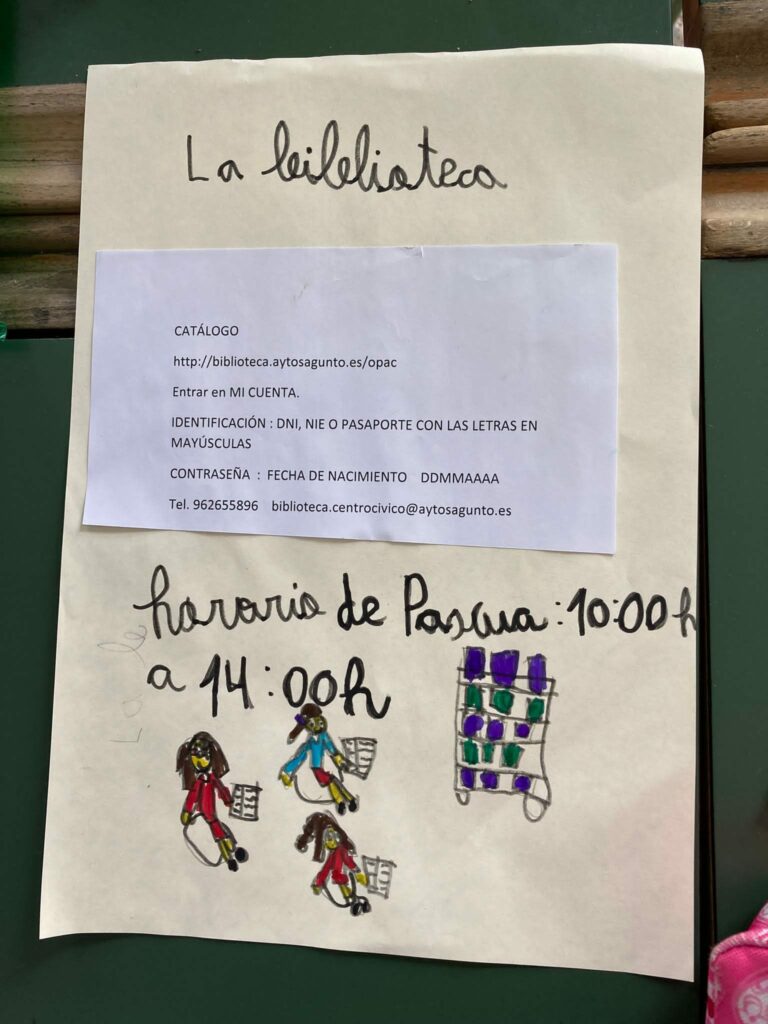 La biblioteca
CATÁLOGO
http://biblioteca.aytosagunto.es/opac
Entrar en MI CUENTA.
IDENTIFICACIÓN : DNI, NIE O PASAPORTE CON LAS LETRAS EN
MAYÚSCULAS
CONTRASEÑA : FECHA DE NACIMIENTO DDMMAAAA
Tel. 962655896 biblioteca.centrocivico@aytosagunto.es
horario de Pascua: 10:00h
a 14:00h
La b